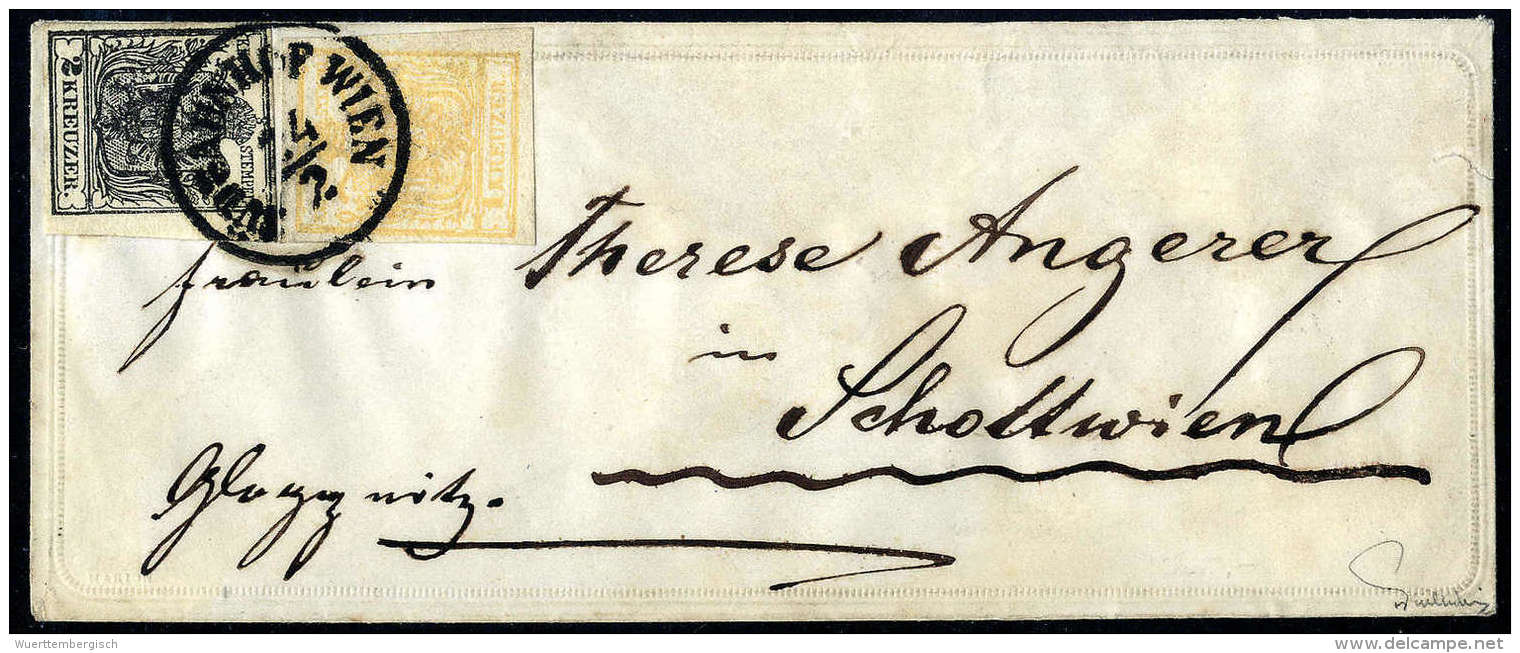 2 KREUZER.
STEMPEL
1 KREUZER
SÜDBAHNHOF WIEN
14/2.
Fräulein Therese Angerer
in
Schottwien
Gloggnitz.
Wuerttembergisch
© delcampe.net